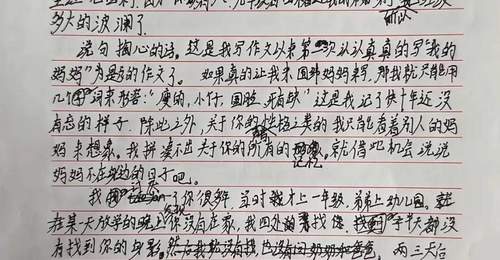 多大的波澜了.
说句掏心的话，这是我写作文以来第一次认认真真的写"我的
妈妈"为题的作文了。如果真的让我来围绕妈妈来写，那我就只能用
几个词来形容："瘦的，小仔，圆脸，"这是我记了快十年还没
有忘的样子.除此之外，关于你的性格之类的我只能看着别人的妈
妈来想象。我拼凑不出关于你的所有的记忆。就借此机会说说
妈妈不在的日子吧。
我了你很多年，当时我才上一年级，弟弟上幼儿园。就
在某天放学的晚上你没有在家，我四处的寻找你，半天都没
有找到你的身影，两三天后